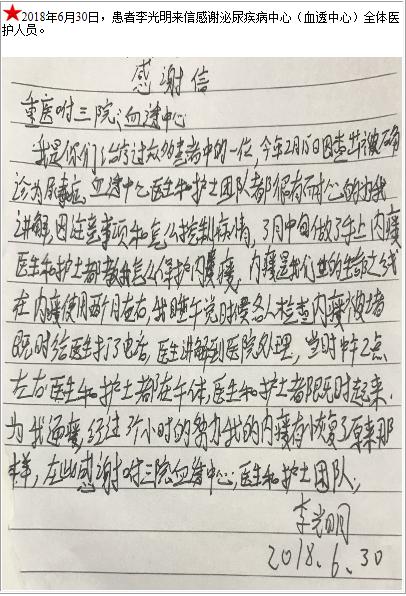 ★2018年6月30日，患者李光明来信感谢泌尿疾病中心（血透中心）全体医
护人员。
感谢信
重医附三院、血透中心
我是你们治疗过众多患者中的一位，今年2月15日因查出被确
诊为尿毒症。血透中心医生和护士团队都很有耐心的为我
讲解，因注意事项和怎么控制病情，3月中旬做了手上内瘘
医生和护士都教我怎么保护内瘘，内瘘是我们世的生命之线
在内瘘使用两个月左右，我睡午觉时候检查内瘘被堵
既时给医生打了电话，医生讲解到医院处理，当时中午2点
左右医生和护士都在午休，医生和护士都既时起来
为我通瘘，经过3个小时的努力我的内瘘有恢复了原来那
样，在此感谢附三院血透中心，医生和护士团队，
李光明
2018.6.30